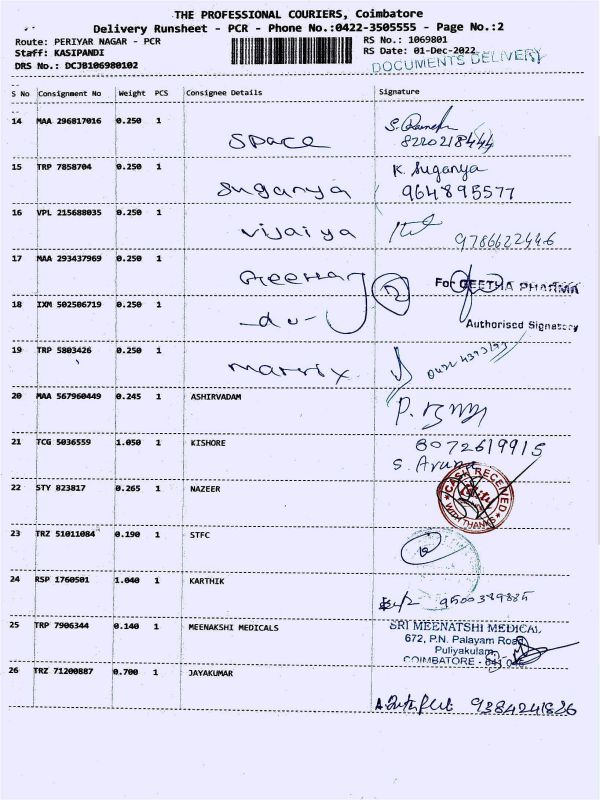 THE PROFESSIONAL COURIERS, Coimbatore
Delivery Runsheet - PCR - Phone No.:0422-3505555 - Page No.:2
Route: PERIYAR NAGAR - PCR
Staff: KASIPANDI
DRS No.: DCJB106980102
RS No.: 1069801
RS Date: 01-Dec-2022
DOCUMENTS DELIVERY
S No Consignment No Weight PCS Consignee Details Signature
14 MAA 296817016 0.250 1 Space
8220218444
15 TRP 7858704 0.250 1 Suganya K. Suganya
964895577
16 VPL 215688035 0.250 1 Vijaiya 9786622446
17 MAA 293437969 0.250 1 Geetha For GEETHA PHARMA
18 IXM 502506719 0.250 1 -du- Authorised Signatory
19 TRP 5803426 0.250 1 Matrix
20 MAA 567960449 0.245 1 ASHIRVADAM
21 TCG 5036559 1.050 1 KISHORE 8072619915
S. Aruna
22 STY 823817 0.265 1 NAZEER CASH RECEIVED WITH THANKS
23 TRZ 51011084 0.190 1 STFC
24 RSP 1760501 1.040 1 KARTHIK 9500389885
25 TRP 7906344 0.140 1 MEENAKSHI MEDICALS SRI MEENATSHI MEDICAL
672, P.N. Palayam Road
Puliyakulam,
COIMBATORE -
26 TRZ 71200887 0.700 1 JAYAKUMAR
9384241826